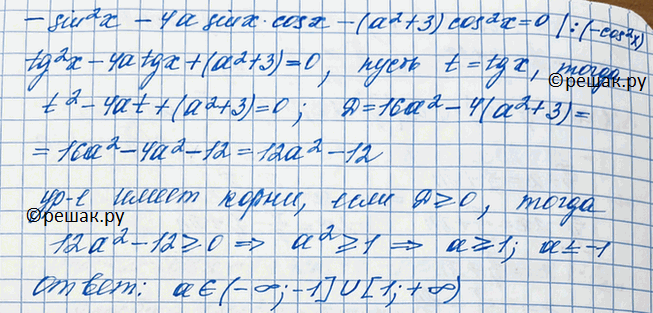 - sin²x - 4a sinx·cosx - (a²+3)cos²x=0 |:(-cos²x)
tg²x - 4a tgx + (a²+3)=0, пусть t = tgx, тогда
©решак.ру
t² - 4at + (a²+3)=0; D=16a² - 4(a²+3)=
= 16a² - 4a² - 12 = 12a² - 12
ур-е имеет корни, если D≥0, тогда
©решак.ру
12a² - 12 ≥ 0 ⇒ a² ≥ 1 ⇒ a ≥ 1; a ≤ -1
Ответ: a∈(-∞;-1]∪[1;+∞)